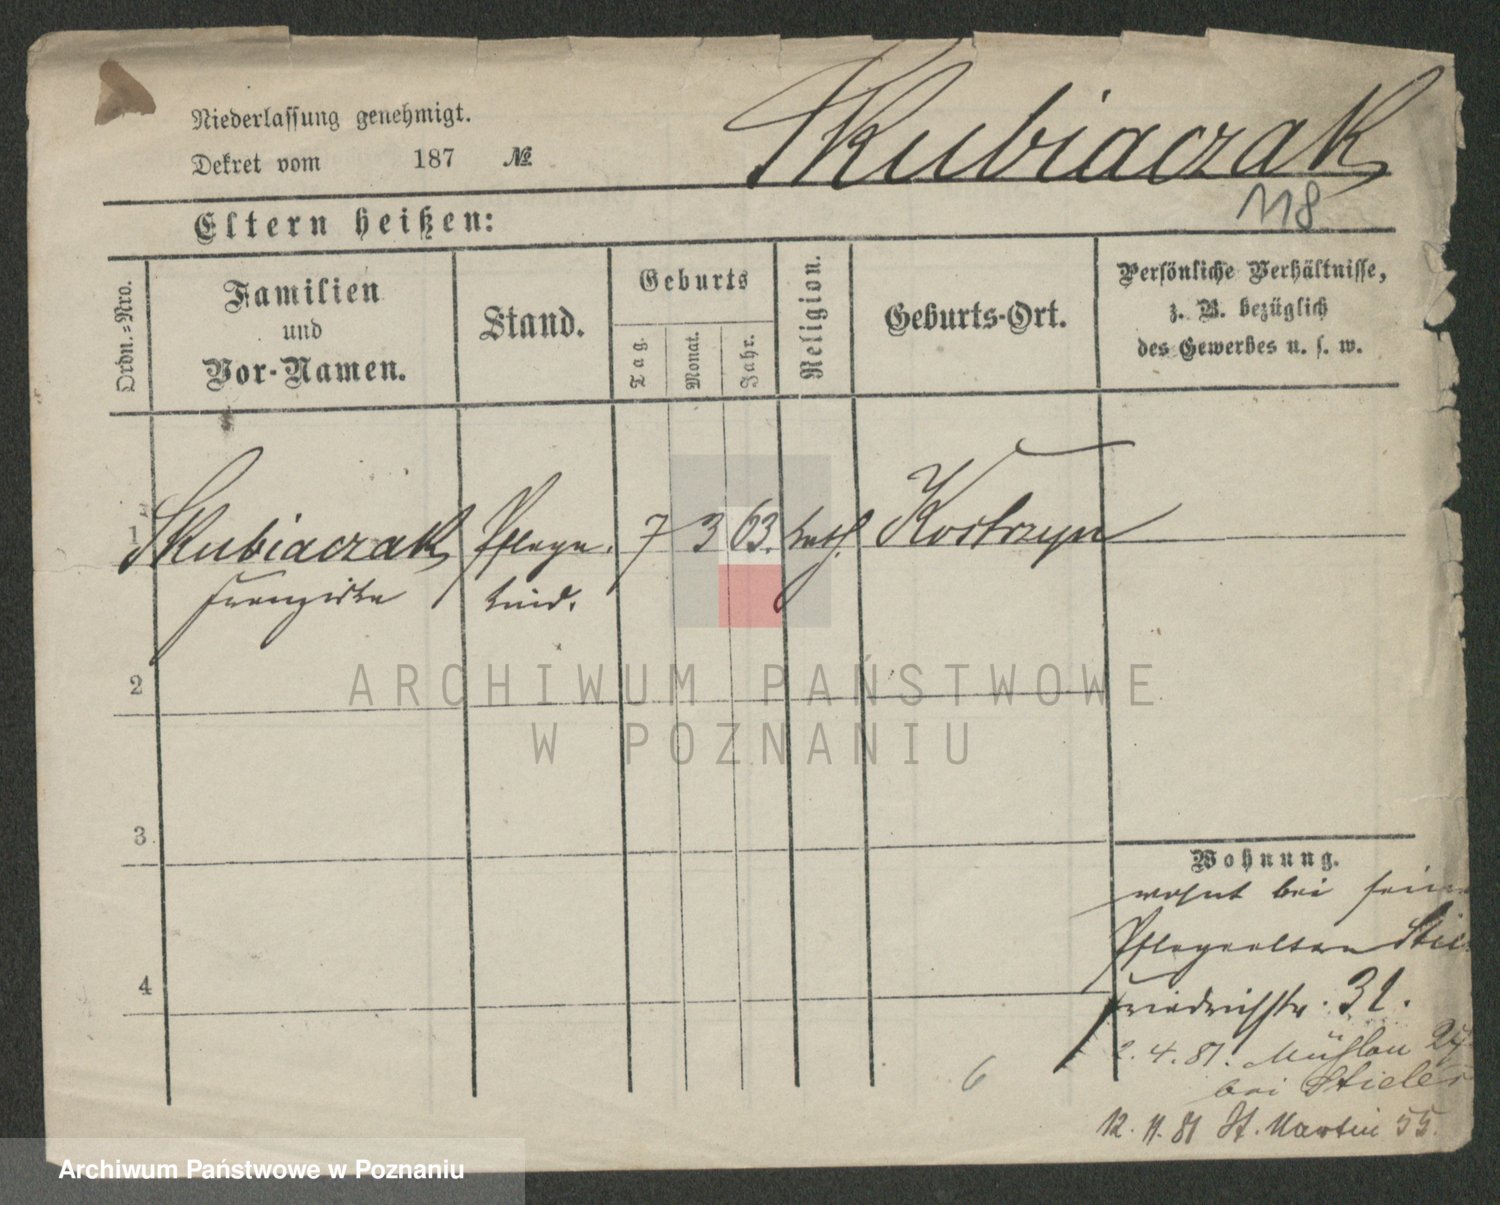 Niederlassung genehmigt.
Dekret vom 187 №
Skubiaczak
118
Eltern heißen:
Ordn.=Nro.
Familien
und
Vor-Namen.
Stand.
Geburts
Tag.
Monat.
Jahr.
Religion.
Geburts-Ort.
Persönliche Verhältnisse,
z. B. bezüglich
des Gewerbes u. s. w.
1 Skubiaczak Pflege- 7 3 63. kath. Kostrzyn
Franziska kind.
2
ARCHIWUM PAŃSTWOWE
W POZNANIU
3
Wohnung.
wohnt bei
Pflegeeltern
4
Friedrichstr. 31.
2. 4. 81. Mühlen
bei Stieler
6
12. 11. 81 St. Martin 55.
Archiwum Państwowe w Poznaniu